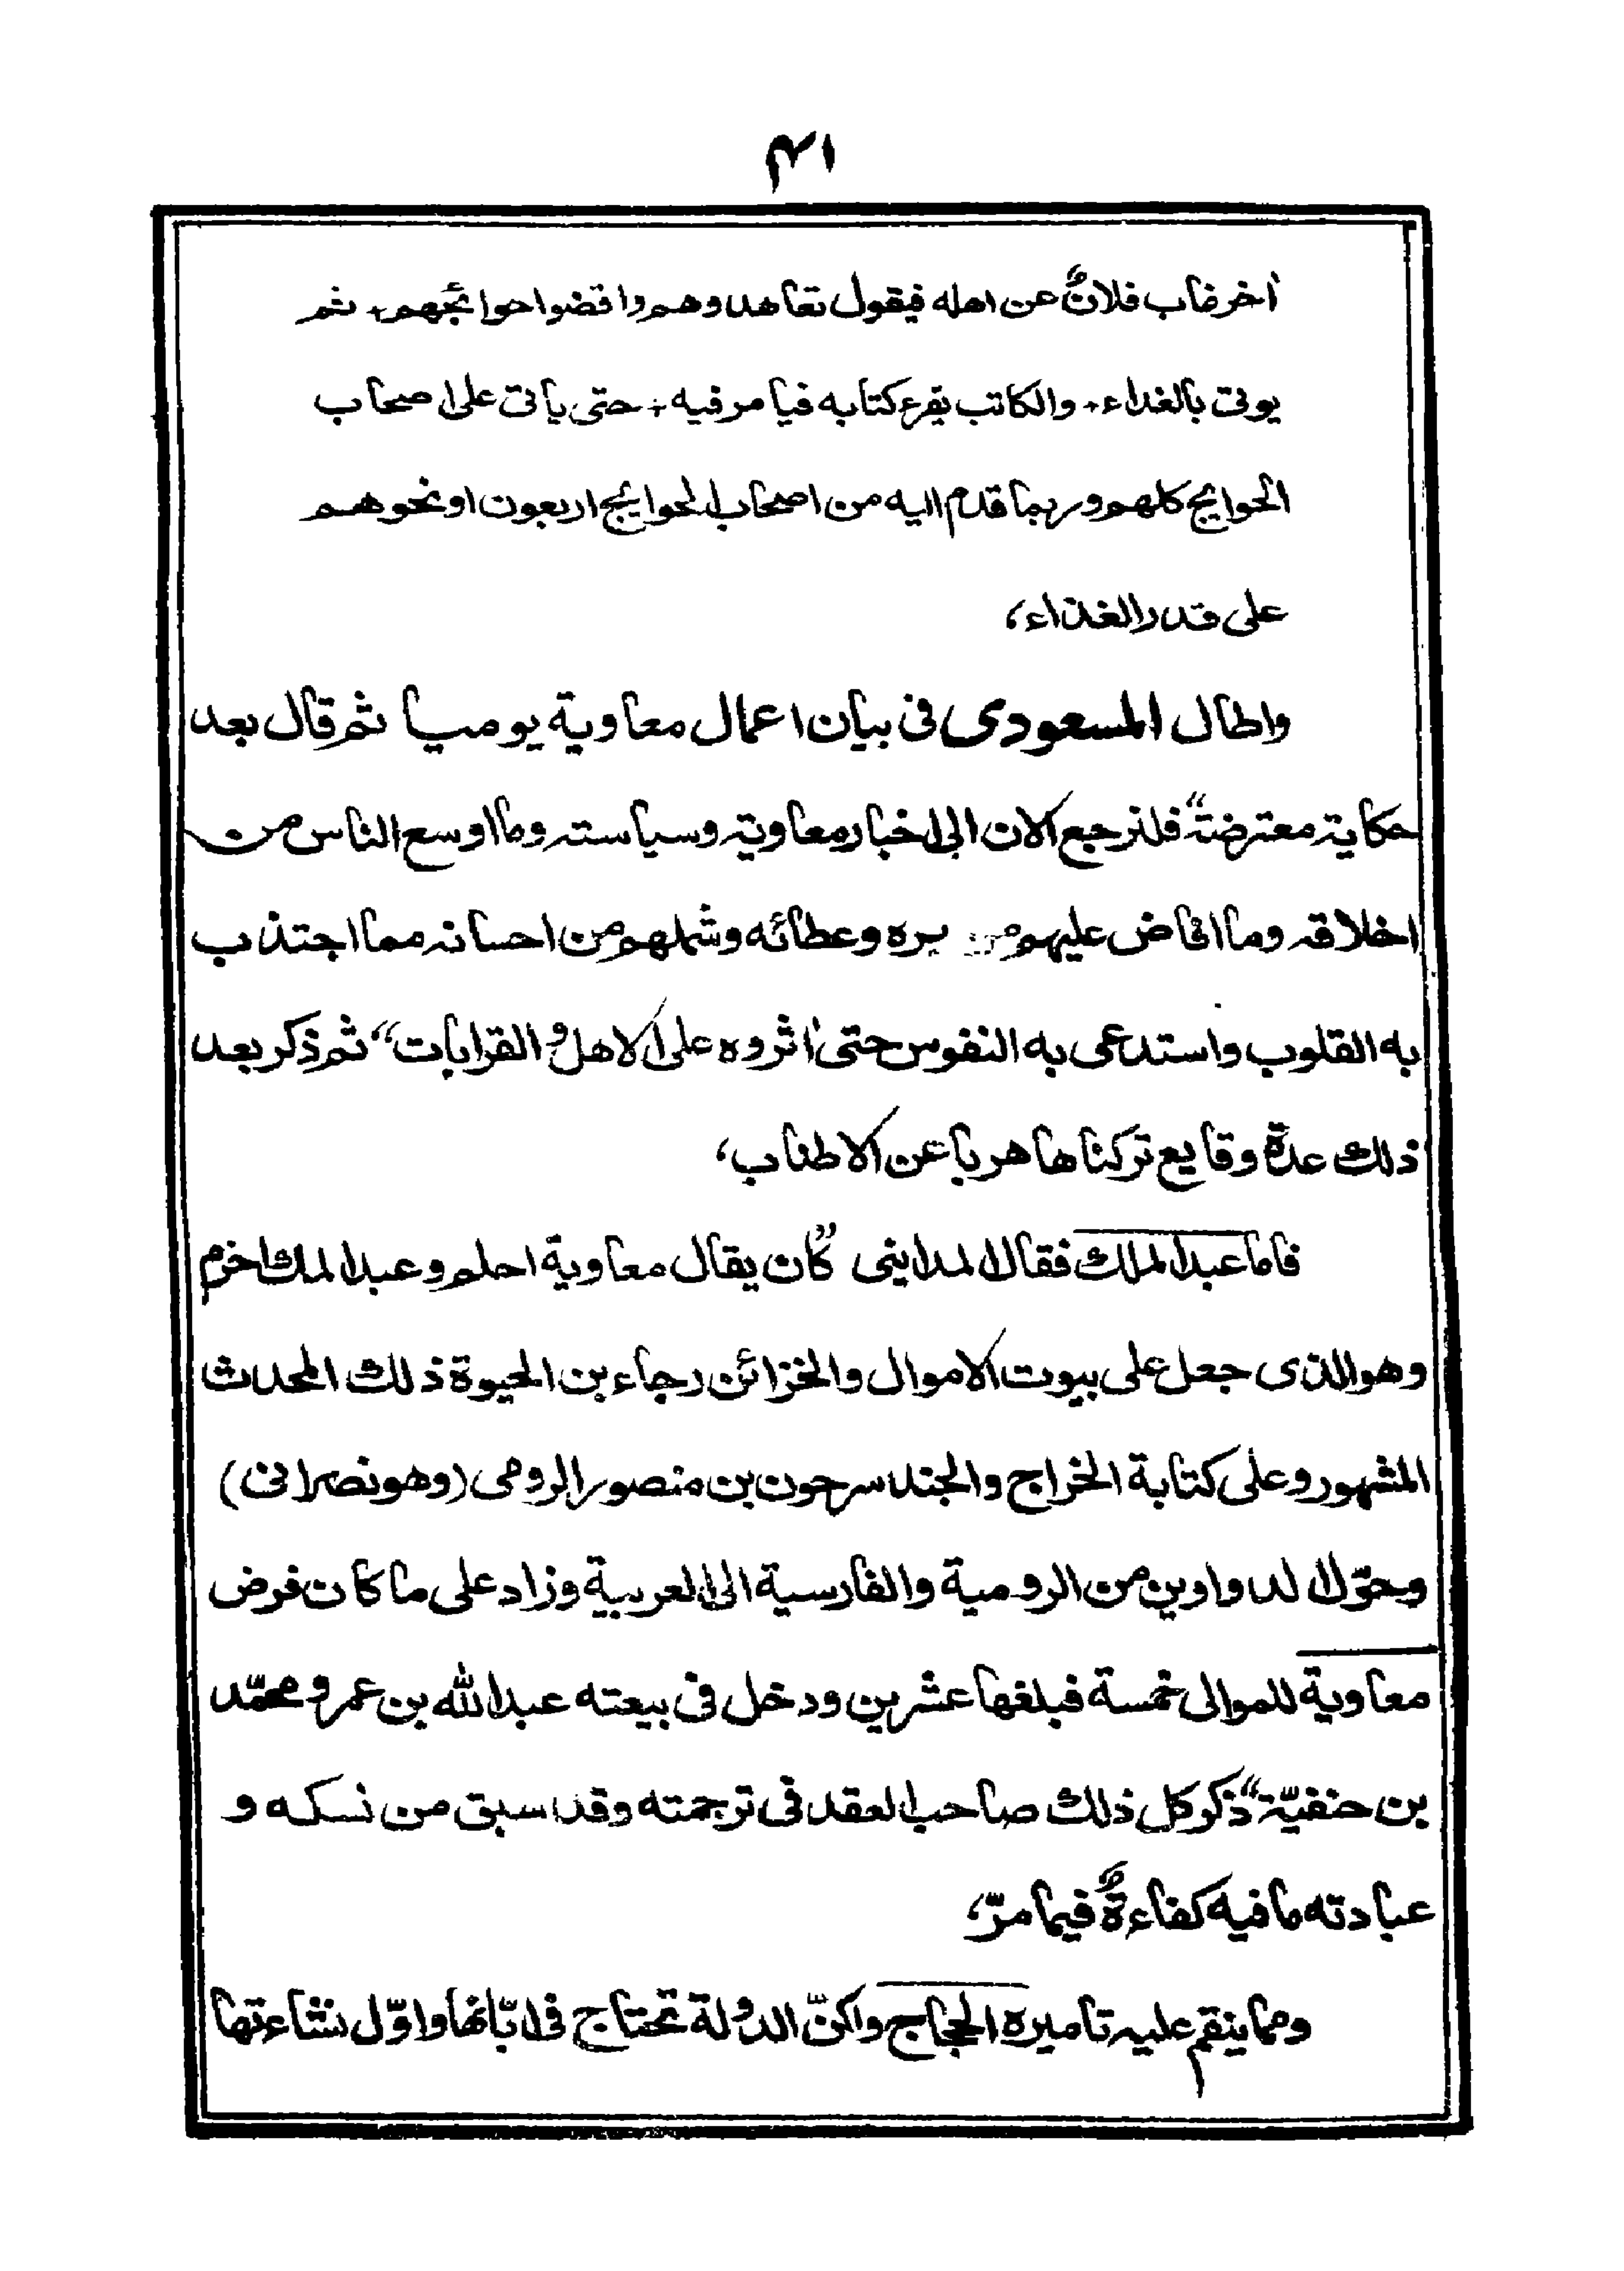 ٤١
اٰخر غاب فلانٌ عن اهله فيقول تعاهدوهم واقضوا حوائجهم، ثم
يوتى بالغداء، والكاتب يقرء كتابه فيامر فيه، حتى ياتى على اصحاب
الحوايج كلهم وربما قدم اليه من اصحاب الحوايج اربعون او نحوهم
على قدر الغذاء،
واطال المسعودى فى بيان اعمال معاوية يوميا ثم قال بعد
حكاية معترضة “فلنرجع الان الى اخبار معاوية وسياسته وما اوسع الناس من
اخلاقه وما افاض عليهم من بره وعطائه وشملهم من احسانه مما اجتذب
به القلوب واستدعى به النفوس حتى اٰثروه على الاهل و القرابات” ثم ذكر بعد
ذلك عدة وقايع تركناها هربا عن الاطناب،
فاما عبد الملك فقال المداينى “كان يقال معاوية احلم وعبد الملك اخزم
وهو الذى جعل على بيوت الاموال والخزائن رجاء بن الحيوة ذلك المحدث
المشهور وعلى كتابة الخراج والجند سرجون بن منصور الرومى (وهو نصرانى)
وحوّل الدواوين من الرومية والفارسية الى العربية وزاد على ما كان فرض
معاوية للموالى خمسة فبلغها عشرين ودخل فى بيعته عبد الله بن عمر و محمّد
بن حنفيّة” ذكر كل ذلك صاحب العقد فى ترجمته وقد سبق من نسكه و
عبادته ما فيه كفاءةٌ فيما مرّ،
ومما ينقم عليه تاميره الحجاج ولكنّ الدولة تحتاج فى ابّانها واوّل نشاءتها